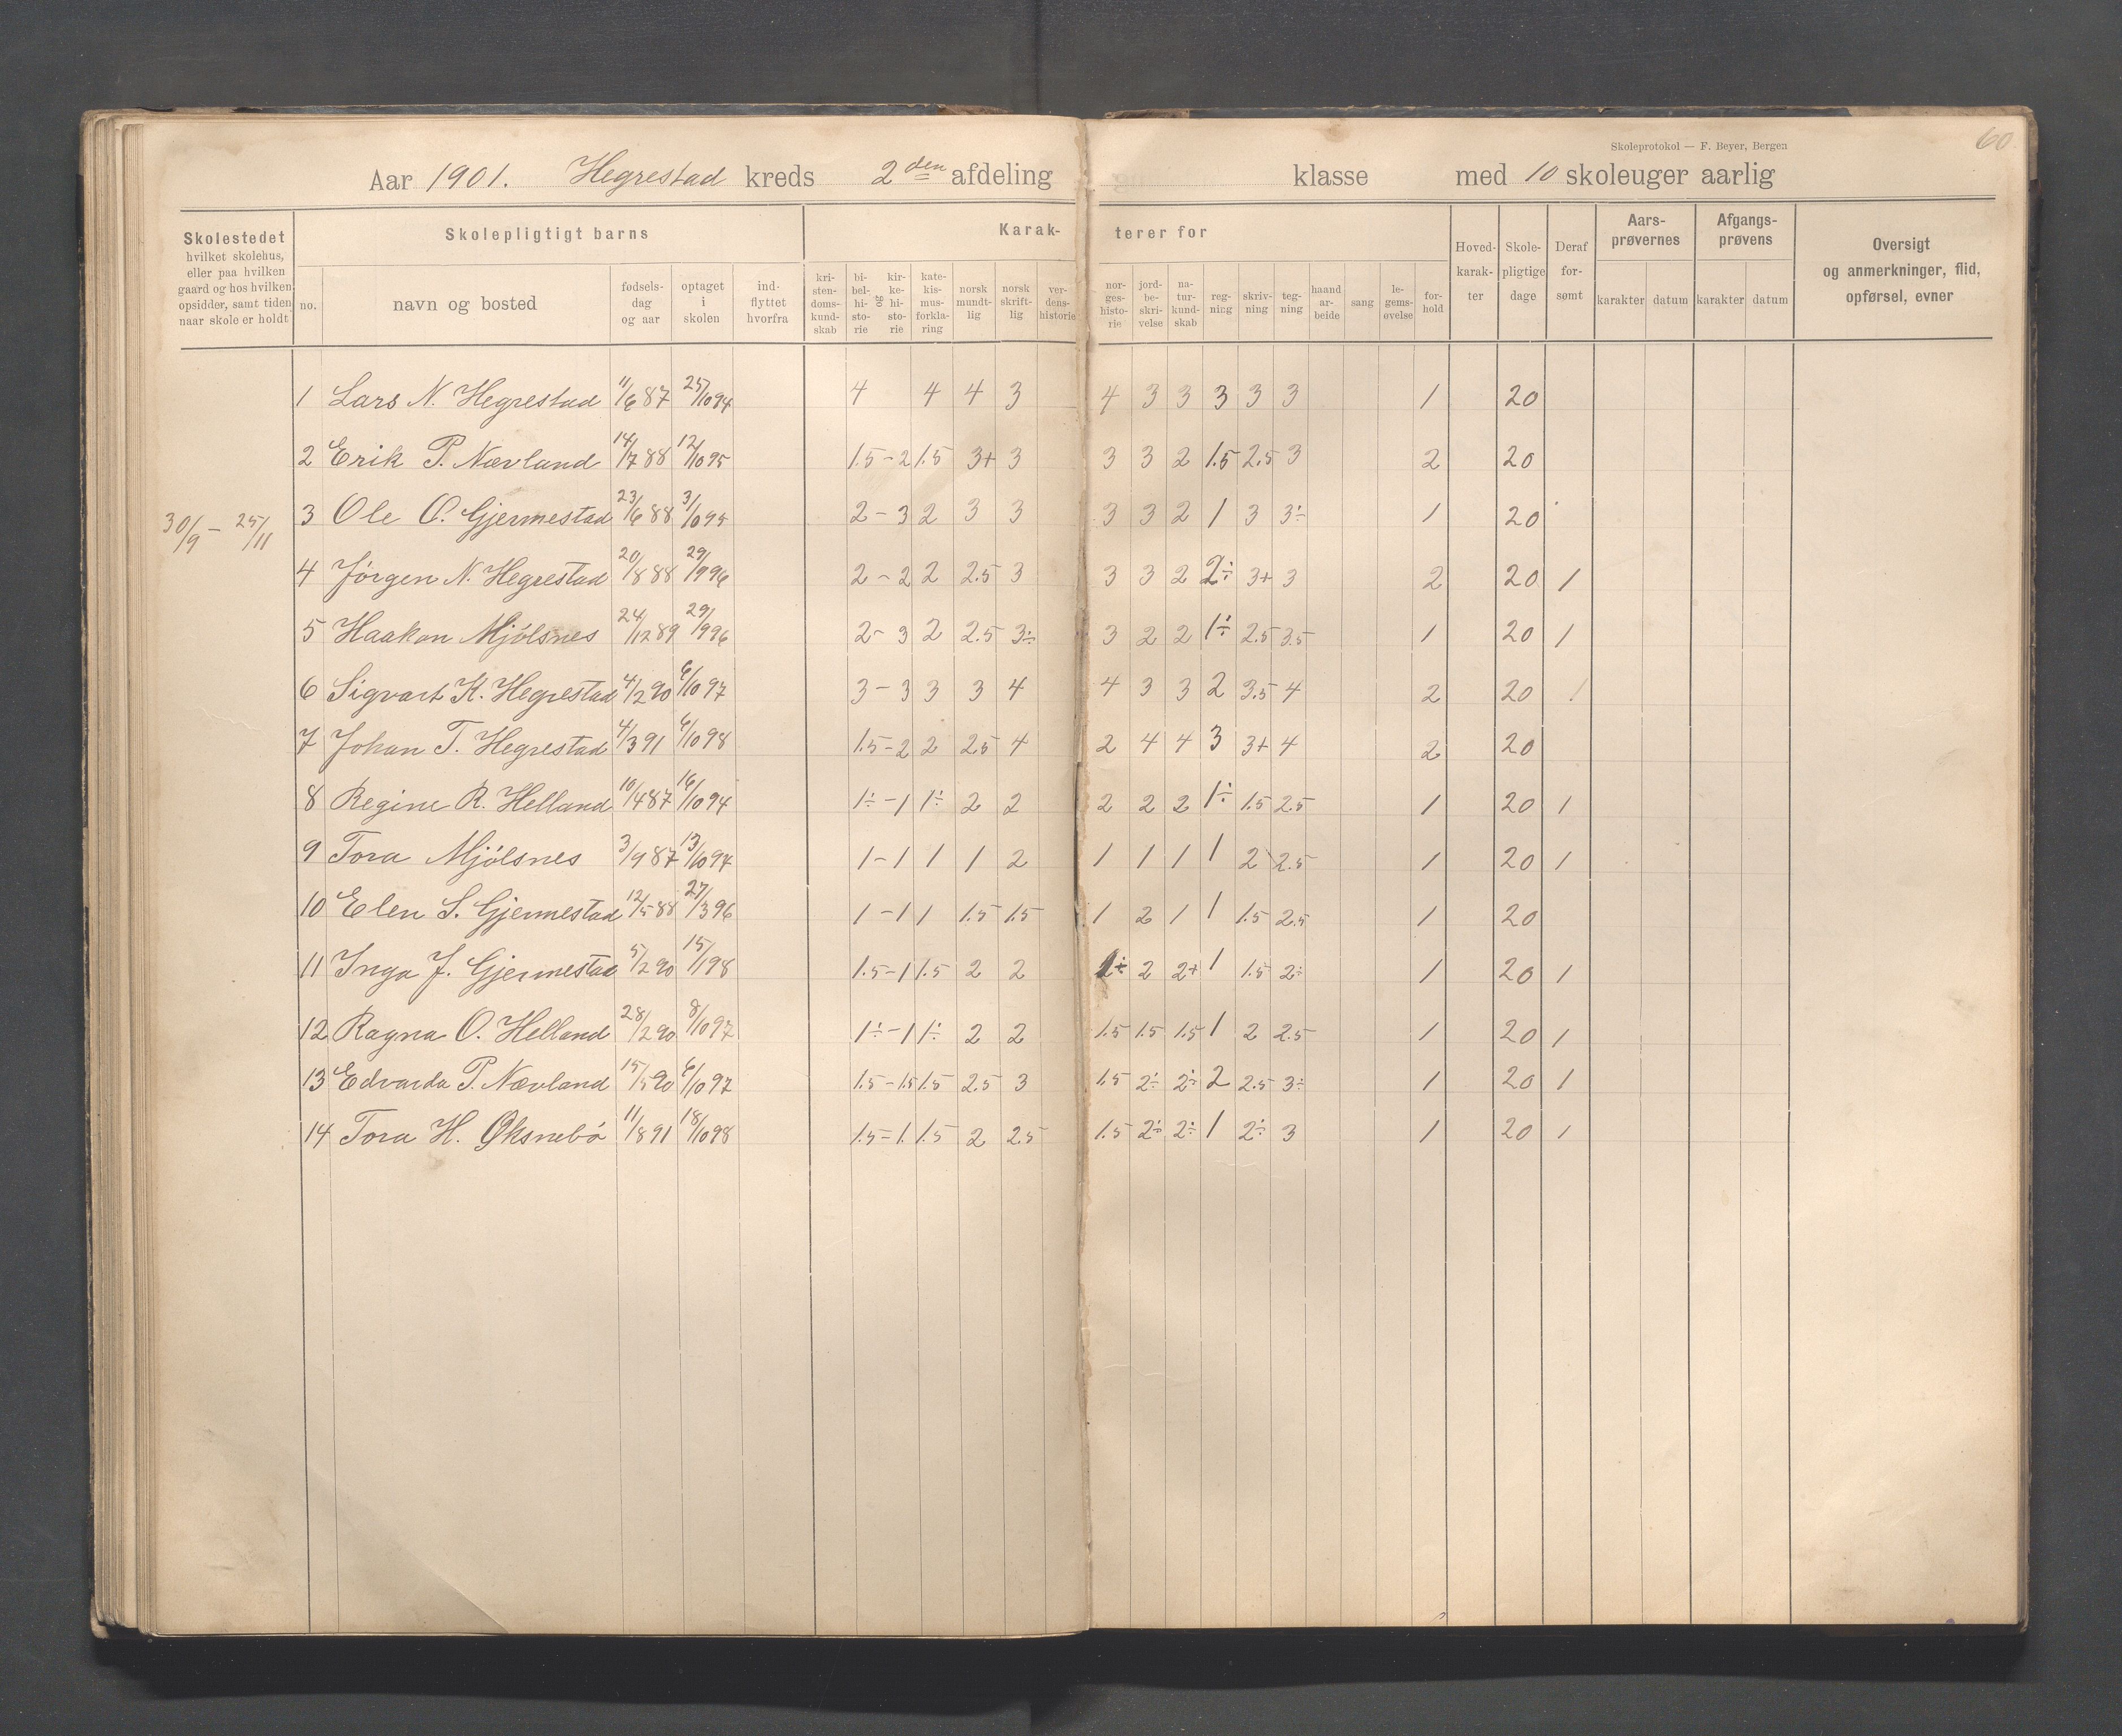 60
Skoleprotokol — F. Beyer, Bergen
Aar 1901. Hegrestad kreds 2den afdeling klasse med 10 skoleuger aarlig
Skolestedet hvilket skolehus, eller paa hvilken gaard og hos hvilken opsidder, samt tiden naar skole er holdt
Skolepligtigt barns
no. navn og bosted fødsels-dag og aar optaget i skolen ind-flyttet hvorfra
Karak-terer for
kri-sten-doms-kund-skab bi-bel-hi-sto-rie og kir-ke-hi-sto-rie kate-kis-mus-forkla-ring norsk mundt-lig norsk skrift-lig ver-dens-historie nor-ges-histo-rie jord-be-skri-velse na-tur-kund-skab reg-ning skriv-ning teg-ning haand ar-beide sang le-gems-øvelse for-hold
Hoved-karak-ter Skole-pligtige dage Deraf for-sømt
Aars-prøvernes karakter datum
Afgangs-prøvens karakter datum
Oversigt og anmerkninger, flid, opførsel, evner
30/9 - 25/11
1 Lars N. Hegrestad 11/6 87 25/10 94 4 4 4 3 4 3 3 3 3 3 1 20
2 Erik P. Nævland 14/7 88 12/10 95 1.5 - 2 1.5 3+ 3 3 3 2 1.5 2.5 3 2 20
3 Ole O. Gjermestad 23/6 88 3/10 95 2 - 3 2 3 3 3 3 2 1 3 3÷ 1 20
4 Jørgen N. Hegrestad 20/8 88 29/9 96 2 - 2 2 2.5 3 3 3 2 2÷ 3+ 3 2 20 1
5 Haakon Mjølsnes 24/12 89 29/9 96 2 - 3 2 2.5 3÷ 3 2 2 1÷ 2.5 3.5 1 20 1
6 Sigvart K. Hegrestad 4/2 90 6/10 97 3 - 3 3 3 4 4 3 3 2 3.5 4 2 20 1
7 Johan T. Hegrestad 4/3 91 6/10 98 1.5 - 2 2 2.5 4 2 4 4 3 3+ 4 2 20
8 Regine R. Helland 10/4 87 16/10 94 1÷ - 1 1÷ 2 2 2 2 2 1÷ 1.5 2.5 1 20 1
9 Tora Mjølsnes 3/9 87 13/10 94 1 - 1 1 1 2 1 1 1 1 2 2.5 1 20 1
10 Elen S. Gjermestad 12/5 88 27/3 96 1 - 1 1 1.5 1.5 1 2 1 1 1.5 2.5 1 20
11 Inga J. Gjermestad 5/2 90 15/1 98 1.5 - 1 1.5 2 2 1÷ 2 2+ 1 1.5 2÷ 1 20 1
12 Ragna O. Helland 28/2 90 8/10 97 1÷ - 1 1÷ 2 2 1.5 1.5 1.5 1 2 2.5 1 20 1
13 Edvarda P. Nævland 15/5 90 6/10 97 1.5 - 1.5 1.5 2.5 3 1.5 2÷ 2÷ 2 2.5 3÷ 1 20 1
14 Tora H. Øksnebø 11/8 91 18/10 98 1.5 - 1. 1.5 2 2.5 1.5 2÷ 2÷ 1 2÷ 3 1 20 1